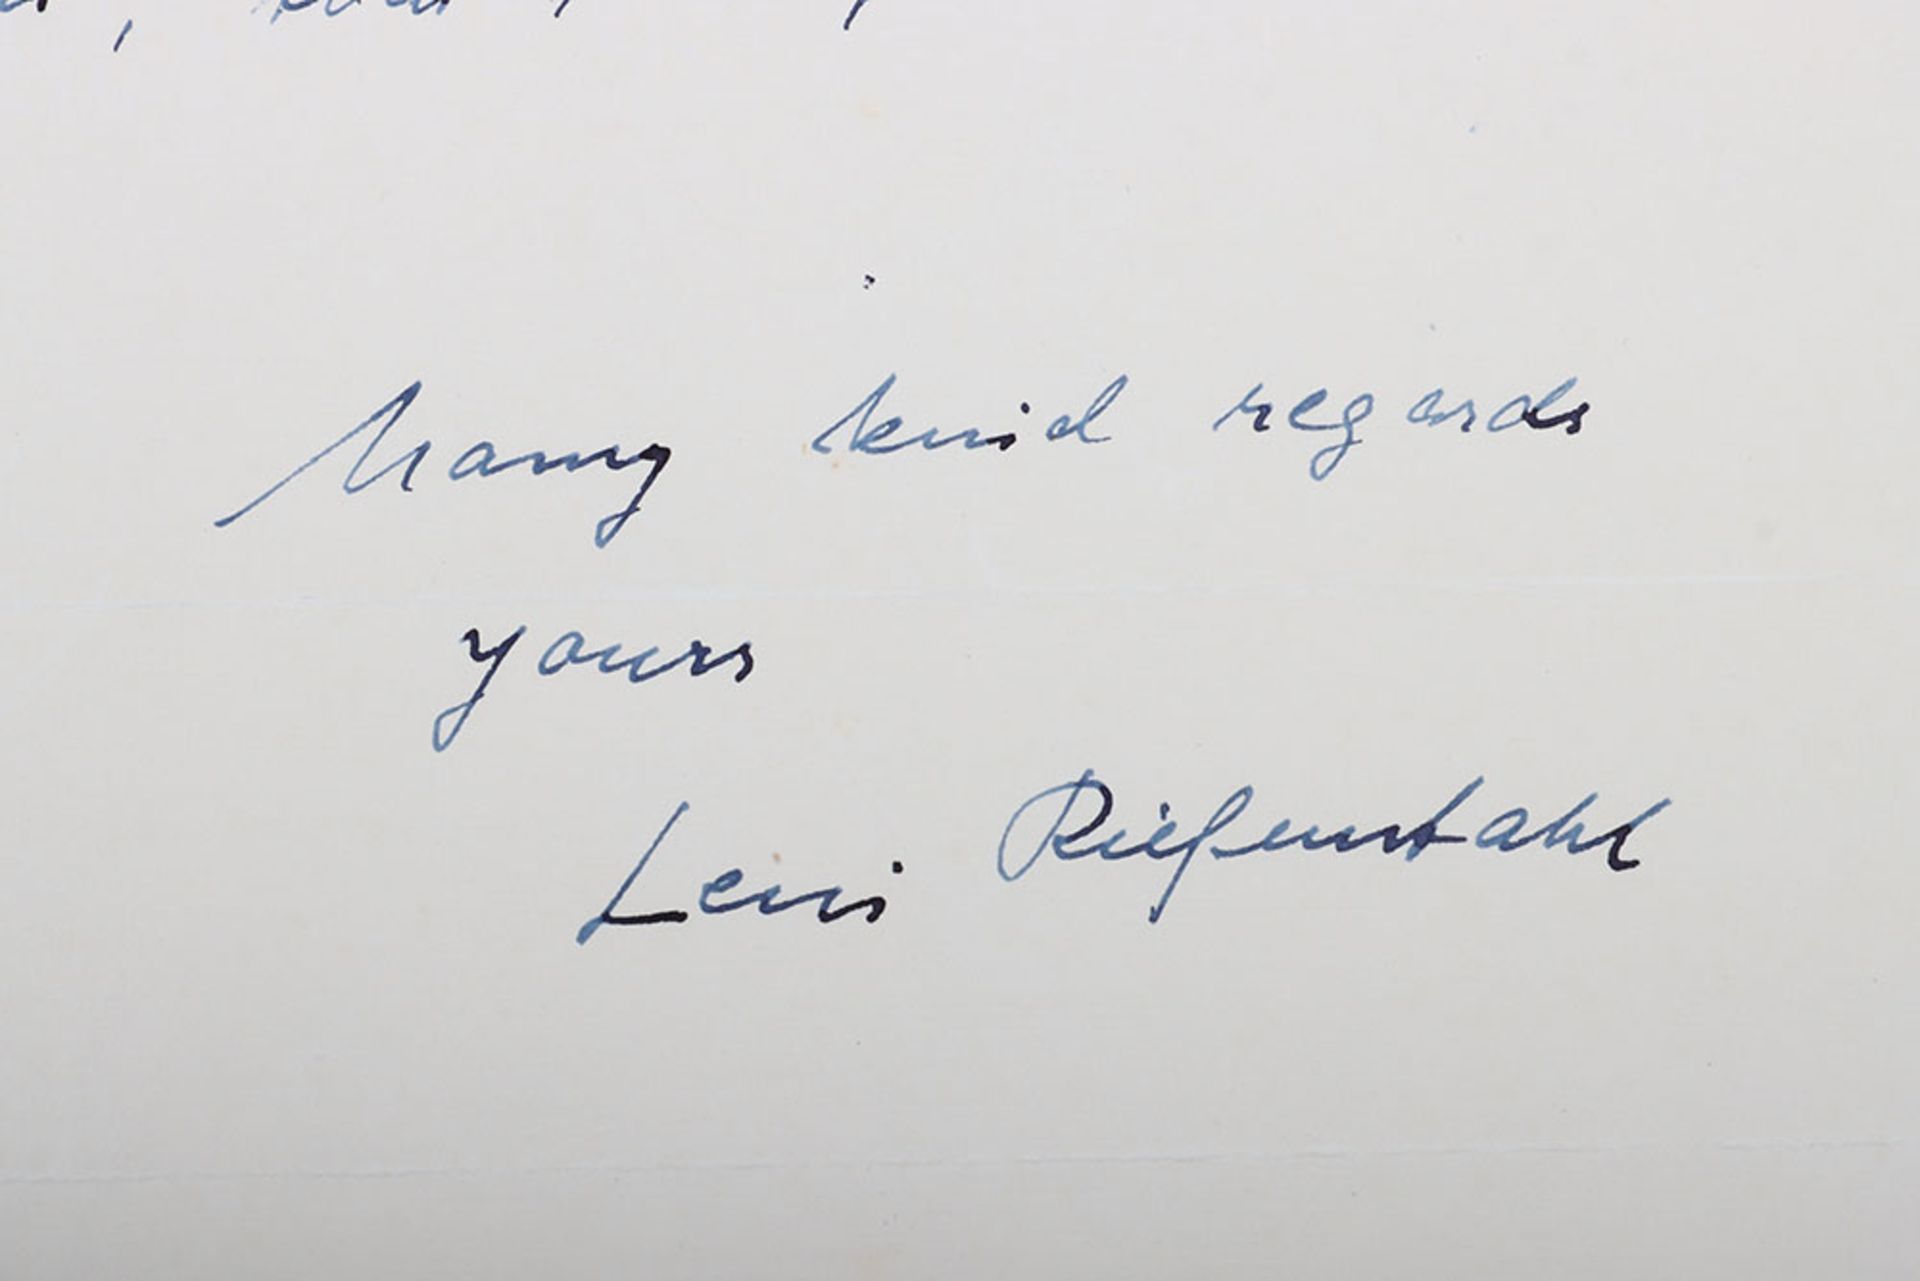 Many kind regards
yours
Leni Riefenstahl